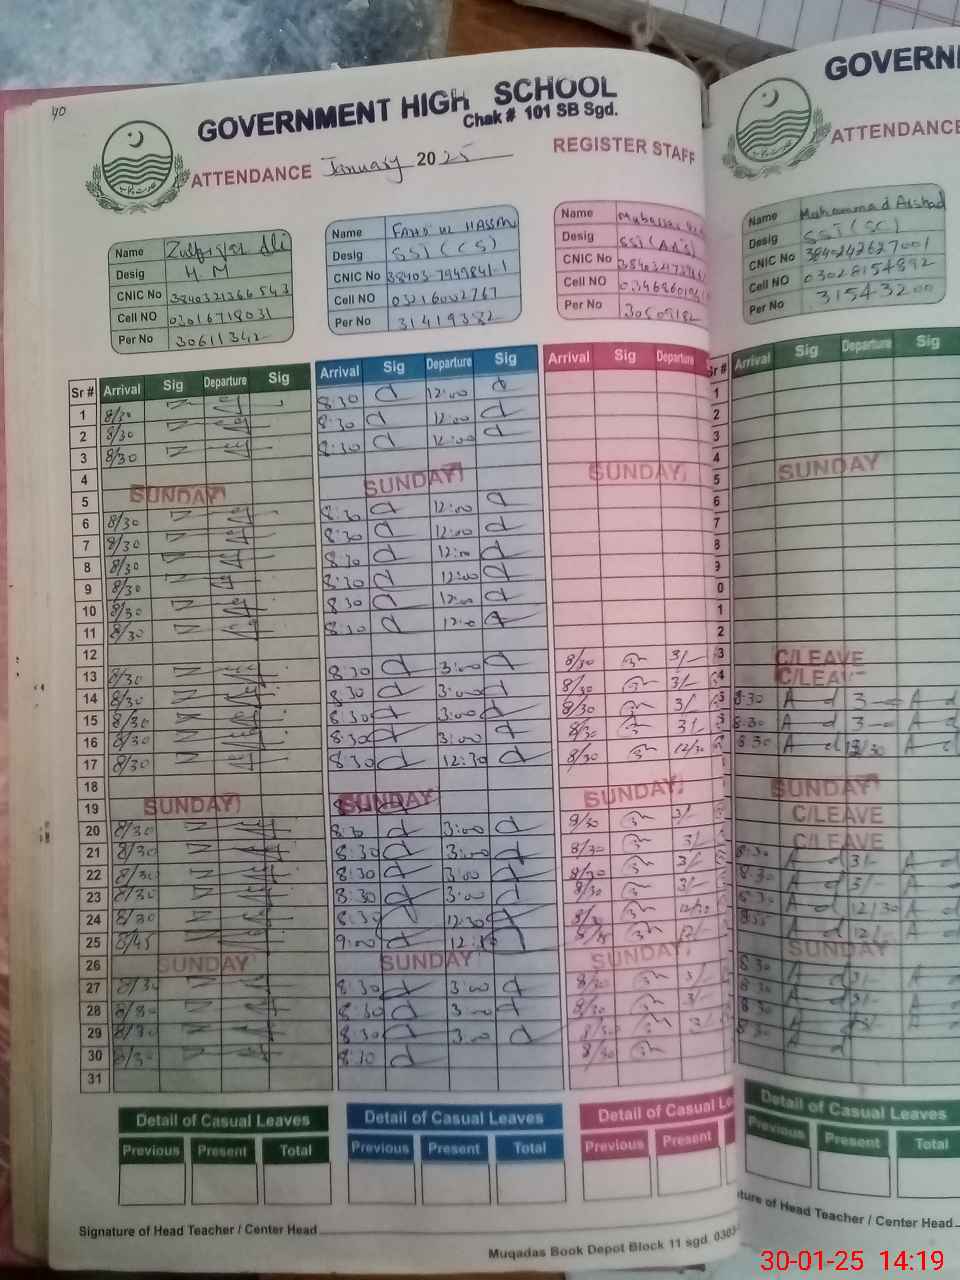 40
GOVERNMENT HIGH SCHOOL
Chak # 101 SB Sgd.
ATTENDANCE January 2025 REGISTER STAFF
Name Zulfiqar Ali
Desig H M
CNIC No 3840321366543
Cell NO 03016718031
Per No 30611342
Name FAHD UL HASSAN
Desig SST (CS)
CNIC No 38403-7949841-1
Cell NO 03216002767
Per No 31419382
Name
Desig SST(AA'S)
CNIC No
Cell NO
Per No 30509182
Sr # Arrival Sig Departure Sig Arrival Sig Departure Sig Arrival Sig Departure
1 8/30 8:30 12:00
2 8/30 8:30 12:00
3 8/30 8:30 12:00
4
5 SUNDAY SUNDAY SUNDAY
6 8/30 8:30 12:00
7 8/30 8:30 12:00
8 8/30 8:30 12:00
9 8/30 8:30 12:00
10 8/30 8:30 12:00
11 8/30 8:30 12:00
12
13 8/30 8:30 3:00 8/30 3/-
14 8/30 8:30 3:00 8/30 3/-
15 8/30 8:30 3:00 8/30 3/-
16 8/30 8:30 3:00 8/30 3/-
17 8/30 8:30 12:30 8/30 12/30
18
19 SUNDAY SUNDAY SUNDAY
20 8/30 8:30 3:00 8/30 3/-
21 8/30 8:30 3:00 8/30 3/-
22 8/30 8:30 3:00 8/30 3/-
23 8/30 8:30 3:00 8/30 3/-
24 8/30 8:30 12:30 8/30 12/30
25 8/45 9:00 12/-
26 SUNDAY SUNDAY SUNDAY
27 8/30 8:30 3:00 8/30 3/-
28 8/30 8:30 3:00 8/30 3/-
29 8/30 8:30 3:00 8/30 3/-
30 8/30 8:30 8/30
31
Detail of Casual Leaves Detail of Casual Leaves Detail of Casual Le
Previous Present Total Previous Present Total Previous Present
Signature of Head Teacher / Center Head
Muqadas Book Depot Block 11 sgd. 0303-
GOVERN
ATTENDANCE
Name Muhammad Arshad
Desig SST (SC)
CNIC No 3840242627001
Cell NO 03028154892
Per No 31543200
Sr # Arrival Sig Departure Sig
1
2
3
4
5 SUNDAY
6
7
8
9
0
1
2
3 C/LEAVE
4 C/LEAVE
5 8:30 3
8:30 3
8:30 12/30
SUNDAY
C/LEAVE
C/LEAVE
8:30 3/-
8:30 3/-
8:30 12/30
8:55 12/-
SUNDAY
8:30 3/-
8:30 3/-
8:30
8:30
Detail of Casual Leaves
Previous Present Total
ture of Head Teacher / Center Head
30-01-25 14:19